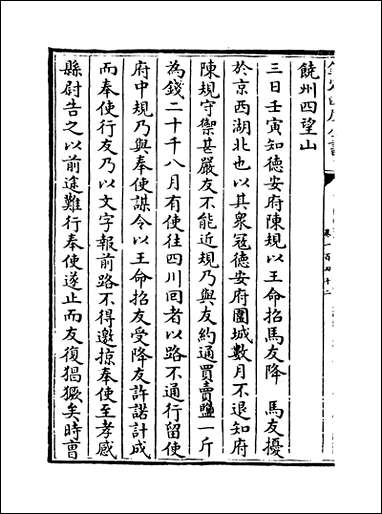 欽定四庫全書
卷一百四十二
饒州四望山
三日壬寅知德安府陳規以王命招馬友降　馬友擾
於京西湖北也以其衆寇德安府圍城數月不退知府
陳規守禦甚嚴友不能近規乃與友約通買賣鹽一斤
為錢二十千八月有使往四川囘者以路不通行留使
府中規乃與奉使謀令以王命招友受降友許諾計成
而奉使行友乃以文字報前路不得邀掠奉使至孝感
縣尉告之以前途難行奉使遂止而友復猖獗矣時曹